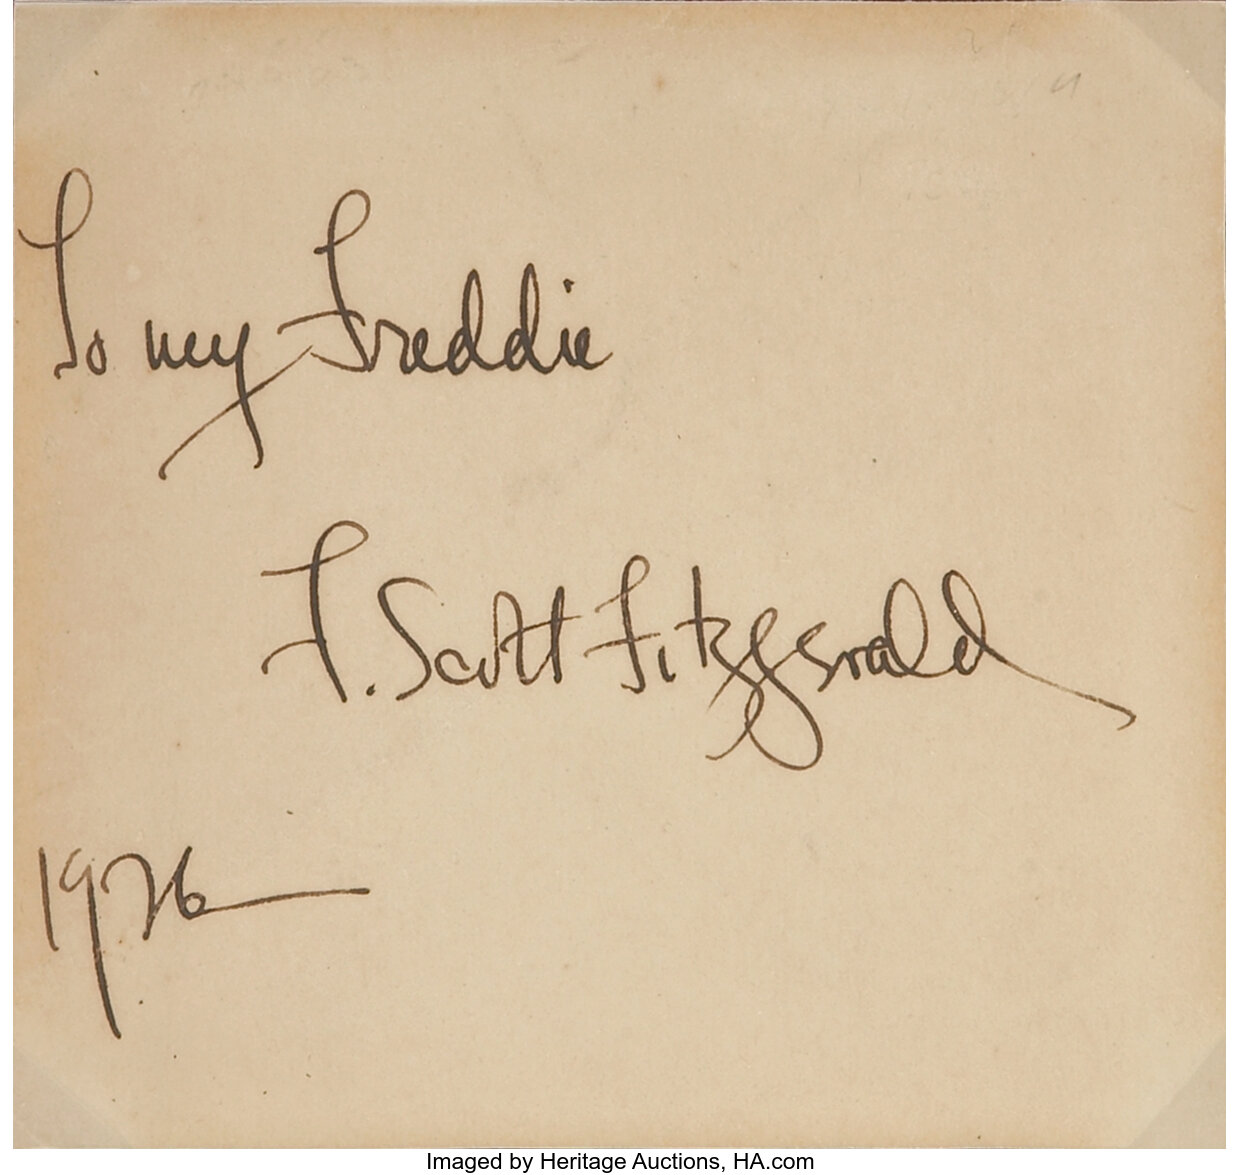 To my Freddie
F. Scott Fitzgerald
1926
Imaged by Heritage Auctions, HA.com